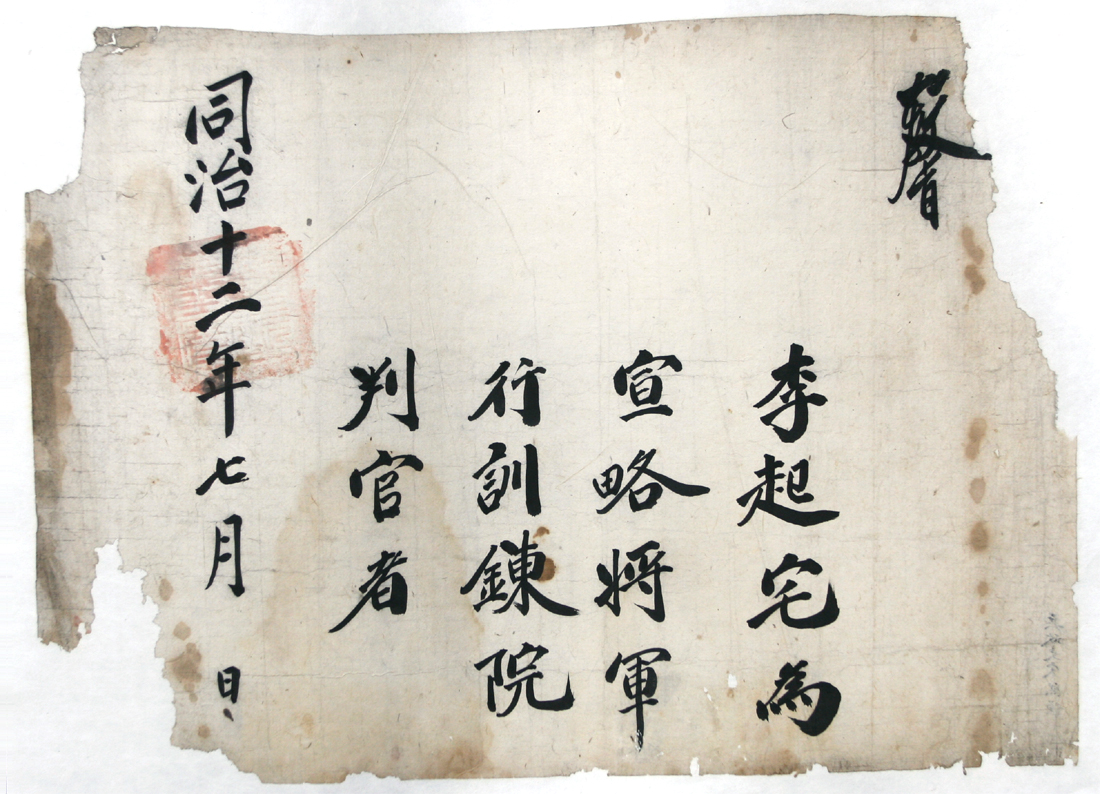 敎旨
李起宅為
宣略將軍
行訓鍊院
判官者
同治十二年七月 日